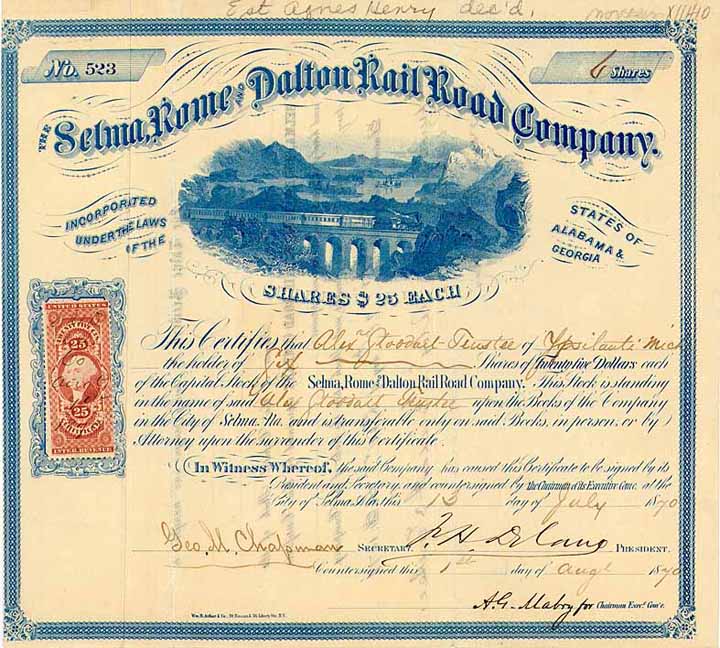 Est Agnes Henry dec'd,
No. 523
6 Shares
THE Selma, Rome AND Dalton Rail Road Company.
INCORPORATED
UNDER THE LAWS
OF THE
STATES OF
ALABAMA &
GEORGIA
SHARES $25 EACH
UNITED STATES
25
25
INTER. REVENUE
This Certifies that Alexr Goodall Trustee of Ypsilanti Mich
the holder of Six Shares of Twenty five Dollars each
of the Capital Stock of the Selma, Rome and Dalton Rail Road Company. This Stock is standing
in the name of said Alex Goodall Trustee upon the Books of the Company
in the City of Selma. Ala. and is transferable only on said Books, in person, or by
Attorney upon the surrender of this Certificate.
In Witness Whereof, the said Company has caused this Certificate to be signed by its
President and Secretary, and countersigned by the Chairman of its Executive Come. at the
City of Selma Ala. this 13 day of July 1870
Geo. M. Chapman SECRETARY. F. H. Delano PRESIDENT.
Countersigned this 1st day of Augt 1870
A. G. Mabry for Chairman Exec. Com'e.